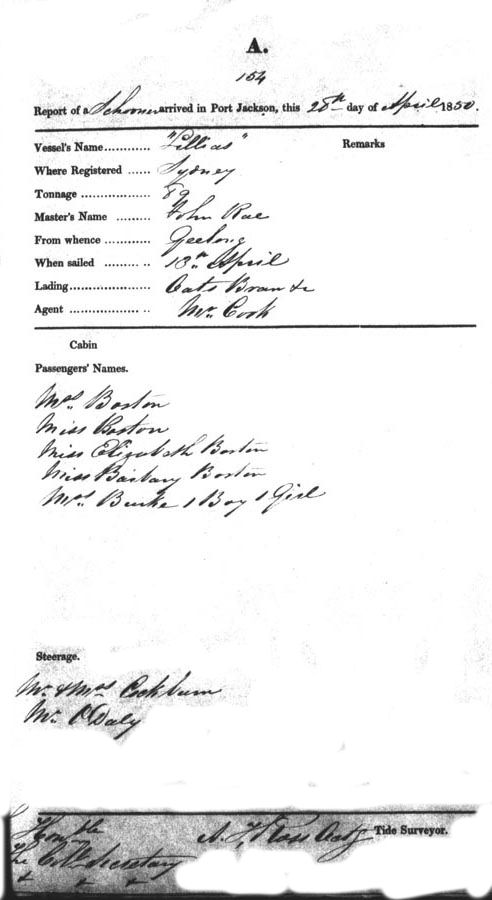 A.
154
Report of a Schooner arrived in Port Jackson, this 28th day of April 1850.
Vessel's Name............ "Lillias" Remarks
Where Registered ...... Sydney
Tonnage .................. 89
Master's Name ......... John Rae
From whence ............ Geelong
When sailed ......... .. 13th April
Lading..................... Oats Bran &c
Agent ................. .. Mr. Cook
Cabin
Passengers' Names.
Mrs. Boston
Miss Boston
Miss Elizabeth Boston
Miss Barbary Boston
Mrs. Burke 1 Boy 1 Girl
Steerage.
Mr. & Mrs. Cockburn
Mr. O'Daly
Honble
A. Ross Actg Tide Surveyor.
The Col Secretary
& & &